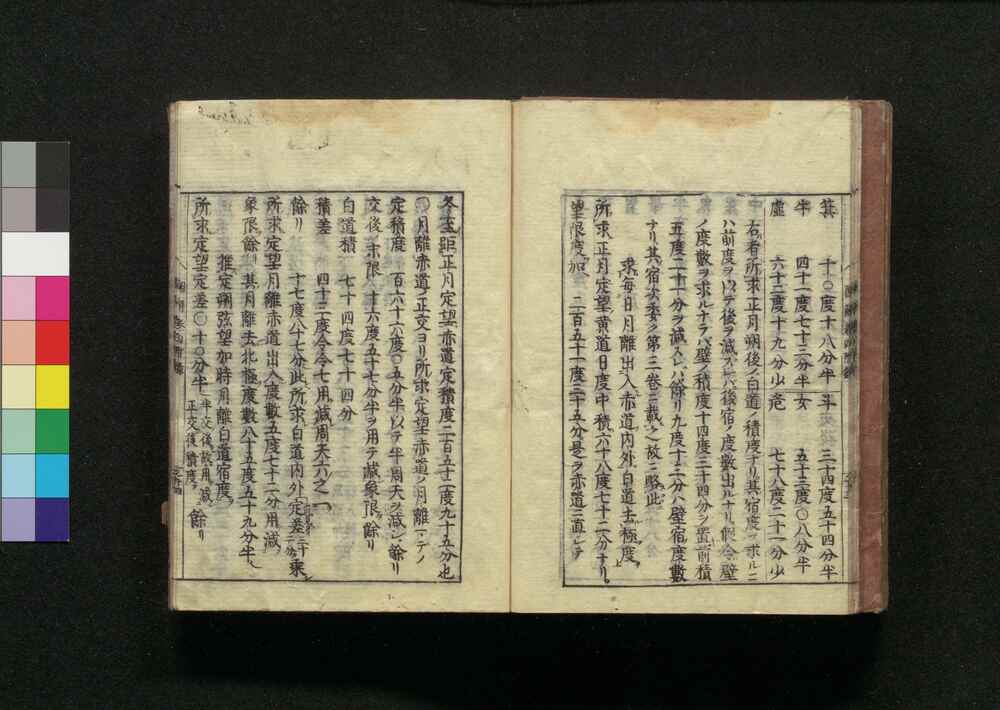 箕　十〇度十八分半　斗　三十四度五十四分半
牛　四十一度七十三分半　女　五十三度〇八分半
虚　六十三度十九分少　危　七十八度二十一分少
右者所求正月朔後ノ白道ノ積度ナリ其宿度ヲ求ルニ
ハ前度ヲ以テ後ヲ減スレハ後宿ノ度數出ルナリ假令壁
ノ度數ヲ求ルナラバ壁ノ積度十四度三十四分ヲ置前積
五度二十一分ヲ減スレハ餘リ九度十三分ハ壁宿度數
ナリ其宿次季ク第三卷ニ載之故ニ略此
求毎日月離出入赤道内外白道去極度
所求正月定望黄道日度中積六十八度七十二分ナリ
望限度加 二百五十一度三十五分是ヲ赤道ニ直シテ
冬至距正月定望赤道定積度二百五十二度九十五分也
月離赤道ノ正交ヨリ所求定望赤道ノ月離一テノ
定積度 百六十六度〇五分半以テ半周天ヲ減シ餘リ
交後 末限 十六度五十七分半ヲ用テ減象限 餘リ
白道積 七十四度七十四分
積差 四十三度令令七用減周天六ハ之
餘リ 十七度八十七分此所求白道内外定差 乗
所求定望月離赤道出入度數五度七十二分用減
象限餘リ其月離去北極度數八十五度五十九分半
推定朔弦望加時月離白道宿度
所求定望定差〇十〇分半 半交後故用減 正交後積度 餘リ